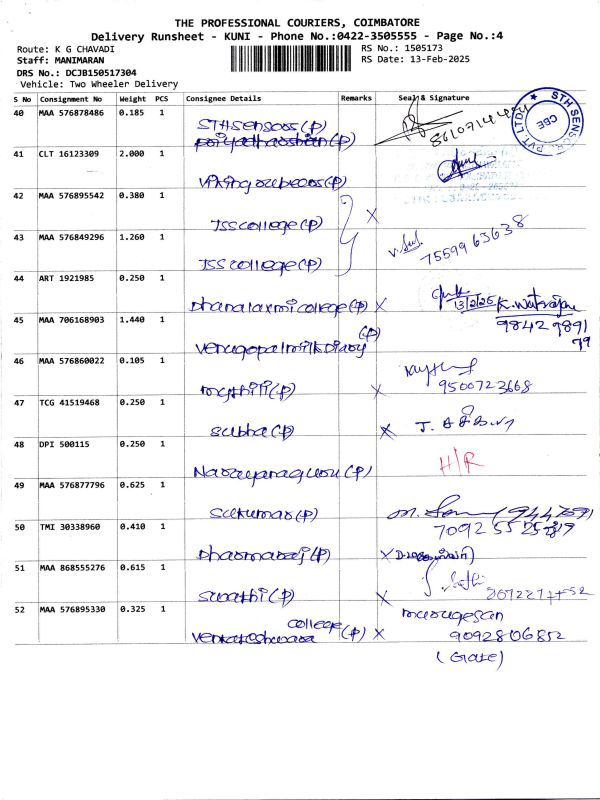 THE PROFESSIONAL COURIERS, COIMBATORE
Delivery Runsheet - KUNI - Phone No.:0422-3505555 - Page No.:4
Route: K G CHAVADI
RS No.: 1505173
Staff: MANIMARAN
RS Date: 13-Feb-2025
DRS No.: DCJB150517304
Vehicle: Two Wheeler Delivery
S No Consignment No Weight PCS Consignee Details Remarks Seal & Signature
40 MAA 576878486 0.185 1
STHsensors(P)
8610714454
STH SENSOR PVT LTD CBE
41 CLT 16123309 2.000 1
42 MAA 576895542 0.380 1
JSScollege(P) X
43 MAA 576849296 1.260 1
JSScollege(P)
7559963638
44 ART 1921985 0.250 1
Dhanalaxmicollege(P) X
13/2/25
45 MAA 706168903 1.440 1
VenugopalmilkDiary (P)
98429891
79
46 MAA 576860022 0.105 1
mythili(P) X
9500723668
47 TCG 41519468 0.250 1
Subha(P) X
48 DPI 500115 0.250 1
Narayanaguru(P)
H/R
49 MAA 576877796 0.625 1
Sukumar(P)
50 TMI 30338960 0.410 1
Dharmaraj(P) X
51 MAA 868555276 0.615 1
Surathi(P) X
52 MAA 576895330 0.325 1
college
Venkateshwara (P) X
murugesan
9092806852
(Gate)